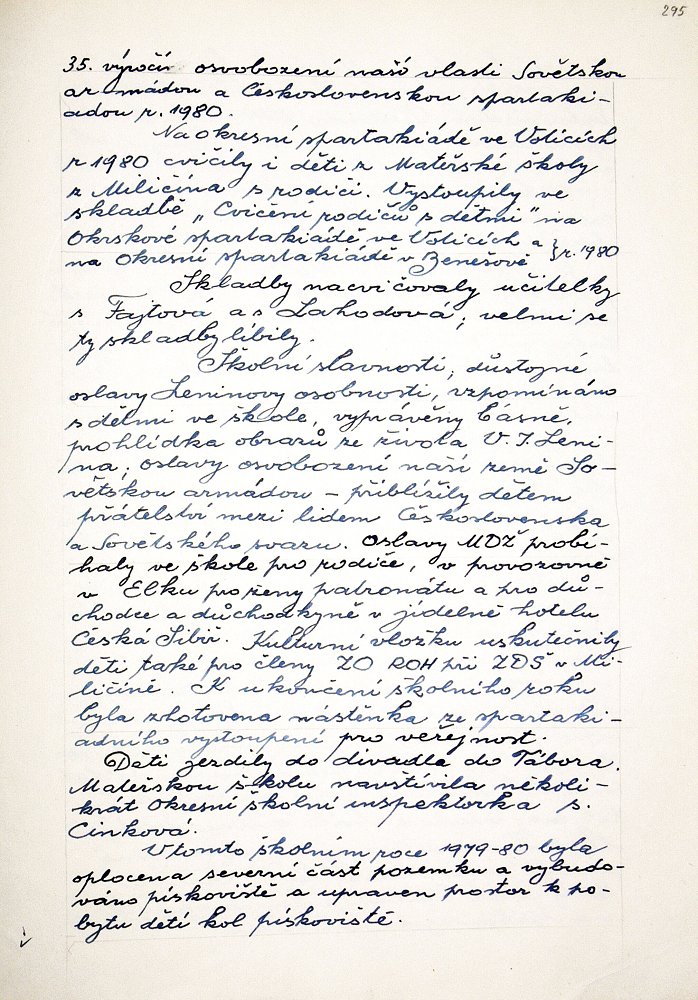 295
35. výročí osvobození naší vlasti Sovětskou
armádou a Československou spartaki-
adou r. 1980.
Na okresní spartakiádě ve Voticích
r 1980 cvičily i děti z Mateřské školy
z Miličína s rodiči. Vystoupily ve
skladbě „Cvičení rodičů s dětmi" na
Okrskové spartakiádě ve Voticích a
na Okresní spartakiádě v Benešově } r. 1980
Skladby nacvičovaly učitelky
s Fajtová a s Lahodová; velmi se
ty skladby líbily.
Školní slavnosti, důstojné
oslavy Leninovy osobnosti, vzpomínáno
s dětmi ve škole, vyprávěny básně,
prohlídka obrazů ze života V. I. Leni-
na; oslavy osvobození naší země So-
větskou armádou – přiblížily dětem
přátelství mezi lidem Československa
a Sovětského svazu. Oslavy MDŽ probí-
haly ve škole pro rodiče, v provozovně
v Elku pro ženy patronátu a pro dů-
chodce a důchodkyně v jídelně hotelu
Česká Sibiř. Kulturní vložku uskutečnily
děti také pro členy ZO ROH při ZDŠ v Mi-
ličíně. K ukončení školního roku
byla zhotovena nástěnka ze spartaki-
adního vystoupení pro veřejnost.
Děti jezdily do divadla do Tábora.
Mateřskou školu navštívila několi-
krát Okresní školní inspektorka s.
Cinková.
V tomto školním roce 1979-80 byla
oplocena severní část pozemku a vybudo-
váno pískoviště a upraven prostor k po-
bytu dětí kol pískoviště.